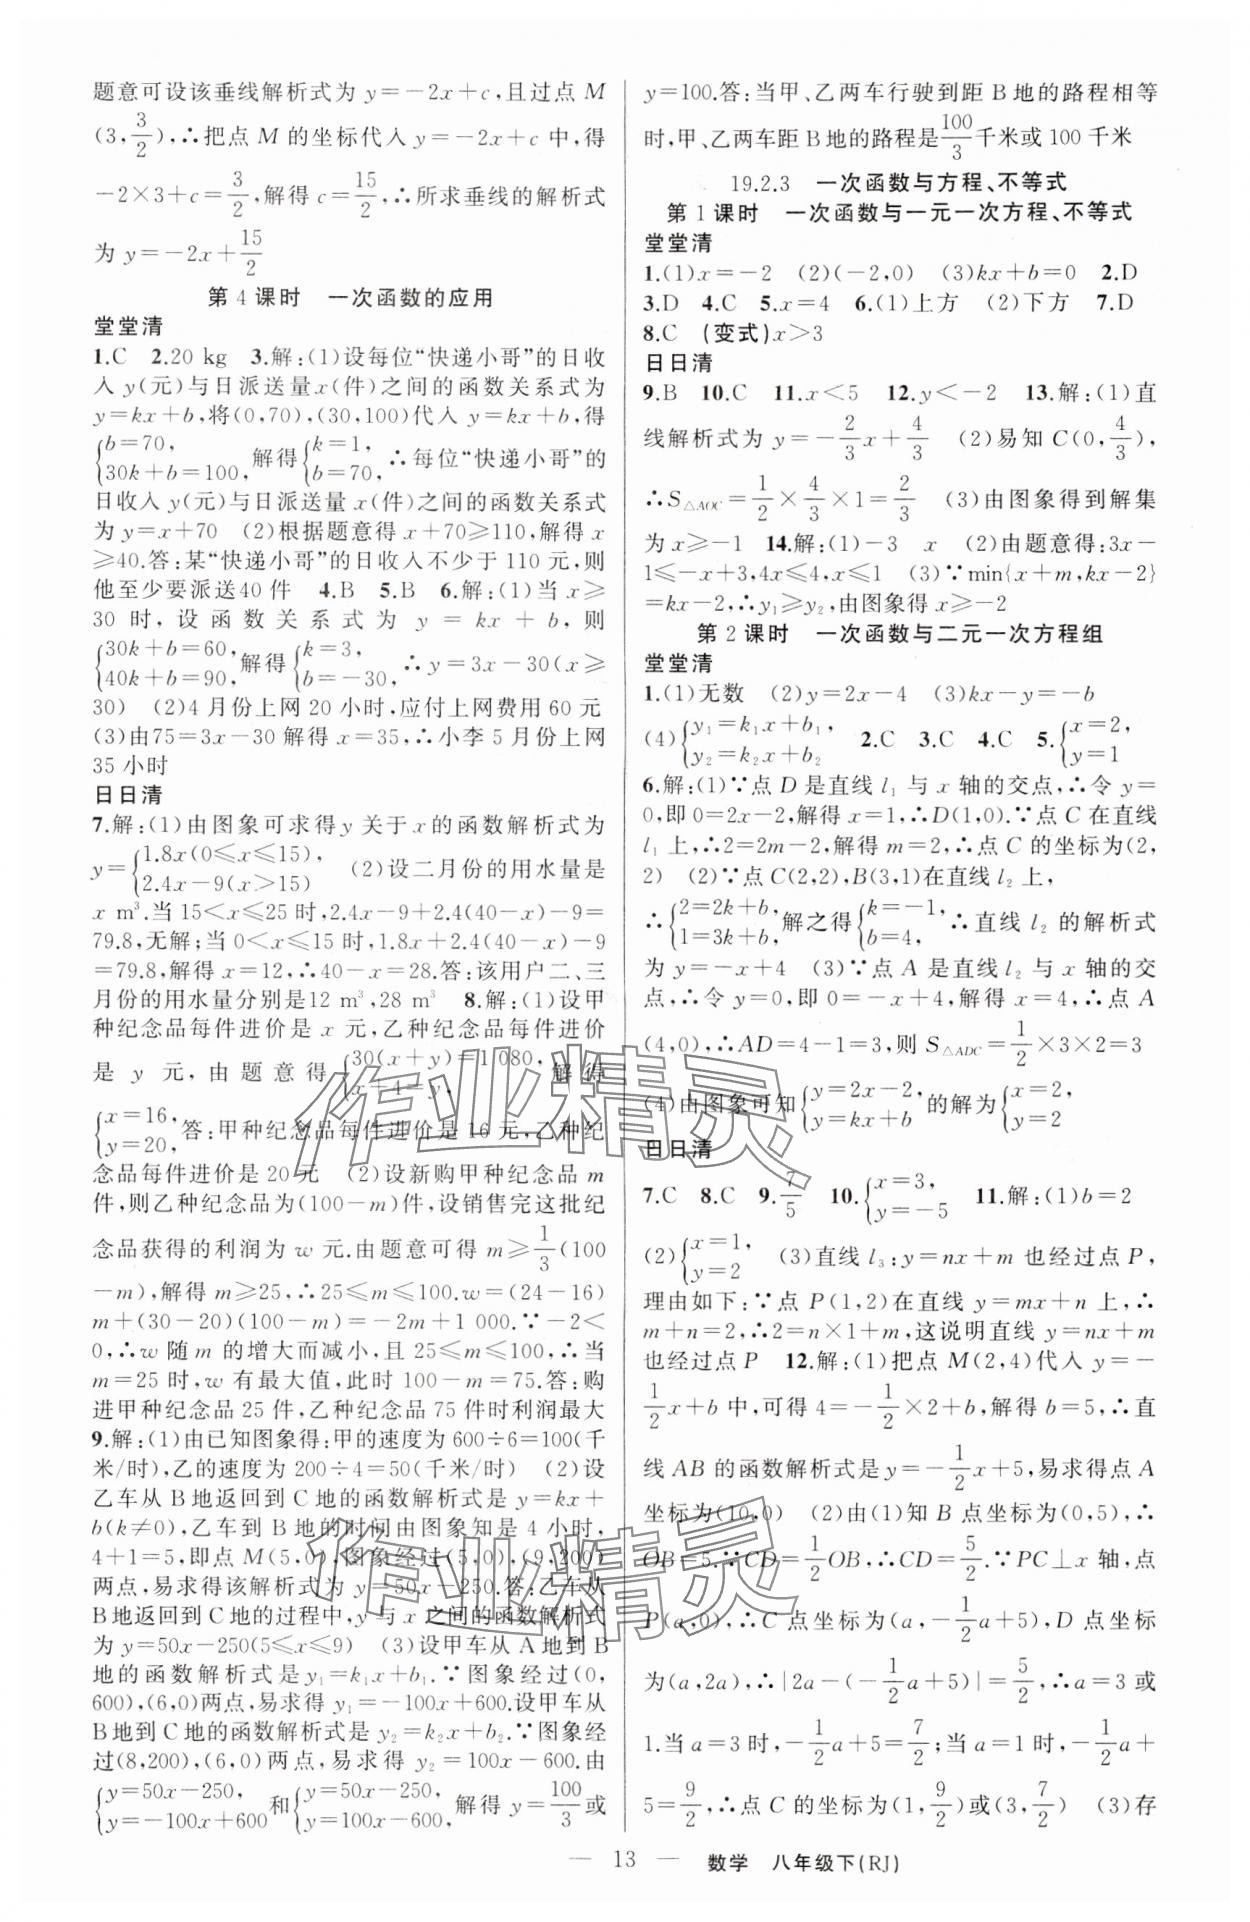 题意可设该垂线解析式为 y=-2x+c,且过点 M
(3,3/2),∴把点 M 的坐标代入 y=-2x+c 中,得
-2×3+c=3/2,解得 c=15/2,∴所求垂线的解析式
为 y=-2x+15/2
第 4 课时 一次函数的应用
堂堂清
1.C 2.20 kg 3.解:(1)设每位“快递小哥”的日收
入 y(元)与日派送量 x(件)之间的函数关系式为
y=kx+b,将(0,70),(30,100)代入 y=kx+b,得
{b=70, 30k+b=100, 解得{k=1, b=70, ∴每位“快递小哥”的
日收入 y(元)与日派送量 x(件)之间的函数关系式
为 y=x+70 (2)根据题意得 x+70≥110,解得 x
≥40.答:某“快递小哥”的日收入不少于 110 元,则
他至少要派送40 件 4.B 5.B 6.解:(1)当 x≥
30 时,设函数关系式为 y=kx+b,则
{30k+b=60, 40k+b=90, 解得{k=3, b=-30, ∴y=3x-30(x≥
30) (2)4 月份上网 20 小时,应付上网费用 60 元
(3)由75=3x-30 解得 x=35,∴小李 5 月份上网
35 小时
日日清
7.解:(1)由图象可求得 y 关于 x 的函数解析式为
y={1.8x(0≤x≤15), 2.4x-9(x>15) (2)设二月份的用水量是
x m³.当 15<x≤25 时,2.4x-9+2.4(40-x)-9=
79.8,无解;当 0<x≤15 时,1.8x+2.4(40-x)-9
=79.8,解得 x=12,∴40-x=28.答:该用户二、三
月份的用水量分别是12 m³,28 m³ 8.解:(1)设甲
种纪念品每件进价是 x 元,乙种纪念品每件进价
是 y 元,由题意得{30(x+y)=1 080, x+4=y, 解得
{x=16, y=20, 答:甲种纪念品每件进价是 16 元,乙种纪
念品每件进价是 20 元 (2)设新购甲种纪念品 m
件,则乙种纪念品为(100-m)件,设销售完这批纪
念品获得的利润为 w 元.由题意可得 m≥1/3(100
-m),解得 m≥25,∴25≤m≤100.w=(24-16)
m+(30-20)(100-m)=-2m+1 000.∵-2<
0,∴w 随 m 的增大而减小,且 25≤m≤100,∴当
m=25 时,w 有最大值,此时 100-m=75.答:购
进甲种纪念品 25 件,乙种纪念品 75 件时利润最大
9.解:(1)由已知图象得:甲的速度为 600÷6=100(千
米/时),乙的速度为 200÷4=50(千米/时) (2)设
乙车从 B 地返回到 C 地的函数解析式是 y=kx+
b(k≠0),乙车到 B 地的时间由图象知是 4 小时,
4+1=5,即点 M(5,0),图象经过(5,0),(9,200)
两点,易求得该解析式为 y=50x-250.答:乙车从
B地返回到 C 地的过程中,y 与 x 之间的函数解析式
为 y=50x-250(5≤x≤9) (3)设甲车从 A 地到 B
地的函数解析式是 y₁=k₁x+b₁.∵图象经过(0,
600),(6,0)两点,易求得 y₁=-100x+600.设甲车从
B地到 C 地的函数解析式是 y₂=k₂x+b₂.∵图象经
过(8,200),(6,0)两点,易求得 y₂=100x-600.由
{y=50x-250, y=-100x+600 和{y=50x-250, y=100x-600, 解得 y=100/3或
y=100.答:当甲、乙两车行驶到距 B 地的路程相等
时,甲、乙两车距 B 地的路程是100/3千米或 100 千米
19.2.3 一次函数与方程、不等式
第 1 课时 一次函数与一元一次方程、不等式
堂堂清
1.(1)x=-2 (2)(-2,0) (3)kx+b=0 2.D
3.D 4.C 5.x=4 6.(1)上方 (2)下方 7.D
8.C (变式)x>3
日日清
9.B 10.C 11.x<5 12.y<-2 13.解:(1)直
线解析式为 y=-2/3x+4/3 (2)易知 C(0,4/3),
∴S△AOC=1/2×4/3×1=2/3 (3)由图象得到解集
为 x≥-1 14.解:(1)-3 x (2)由题意得:3x-
1≤-x+3,4x≤4,x≤1 (3)∵min{x+m,kx-2}
=kx-2,∴y₁≥y₂,由图象得 x≥-2
第 2 课时 一次函数与二元一次方程组
堂堂清
1.(1)无数 (2)y=2x-4 (3)kx-y=-b
(4){y₁=k₁x+b₁, y₂=k₂x+b₂ 2.C 3.C 4.C 5.{x=2, y=1
6.解:(1)∵点 D 是直线 l₁ 与 x 轴的交点,∴令 y=
0,即 0=2x-2,解得 x=1,∴D(1,0).∵点 C 在直线
l₁ 上,∴2=2m-2,解得 m=2,∴点 C 的坐标为(2,
2) (2)∵点 C(2,2),B(3,1)在直线 l₂ 上,
∴{2=2k+b, 1=3k+b, 解之得{k=-1, b=4, ∴直线 l₂ 的解析式
为 y=-x+4 (3)∵点 A 是直线 l₂ 与 x 轴的交
点,∴令 y=0,即 0=-x+4,解得 x=4,∴点 A
(4,0),∴AD=4-1=3,则 S△ADC=1/2×3×2=3
(4)由图象可知{y=2x-2, y=kx+b 的解为{x=2, y=2
日日清
7.C 8.C 9.7/5 10.{x=3, y=-5 11.解:(1)b=2
(2){x=1, y=2 (3)直线 l₃:y=nx+m 也经过点 P,
理由如下:∵点 P(1,2)在直线 y=mx+n 上,∴
m+n=2,∴2=n×1+m,这说明直线 y=nx+m
也经过点 P 12.解:(1)把点 M(2,4)代入 y=-
1/2x+b 中,可得 4=-1/2×2+b,解得 b=5,∴直
线 AB 的函数解析式是 y=-1/2x+5,易求得点 A
坐标为(10,0) (2)由(1)知 B 点坐标为(0,5),∴
OB=5.∵CD=1/2OB,∴CD=5/2.∵PC⊥x 轴,点
P(a,0),∴C 点坐标为(a,-1/2a+5),D 点坐标
为(a,2a),∴|2a-(-1/2a+5)|=5/2,∴a=3 或
1.当 a=3 时,-1/2a+5=7/2;当 a=1 时,-1/2a+
5=9/2,∴点 C 的坐标为(1,9/2)或(3,7/2) (3)存
— 13 — 数学 八年级下(RJ)
作业精灵
作业精灵